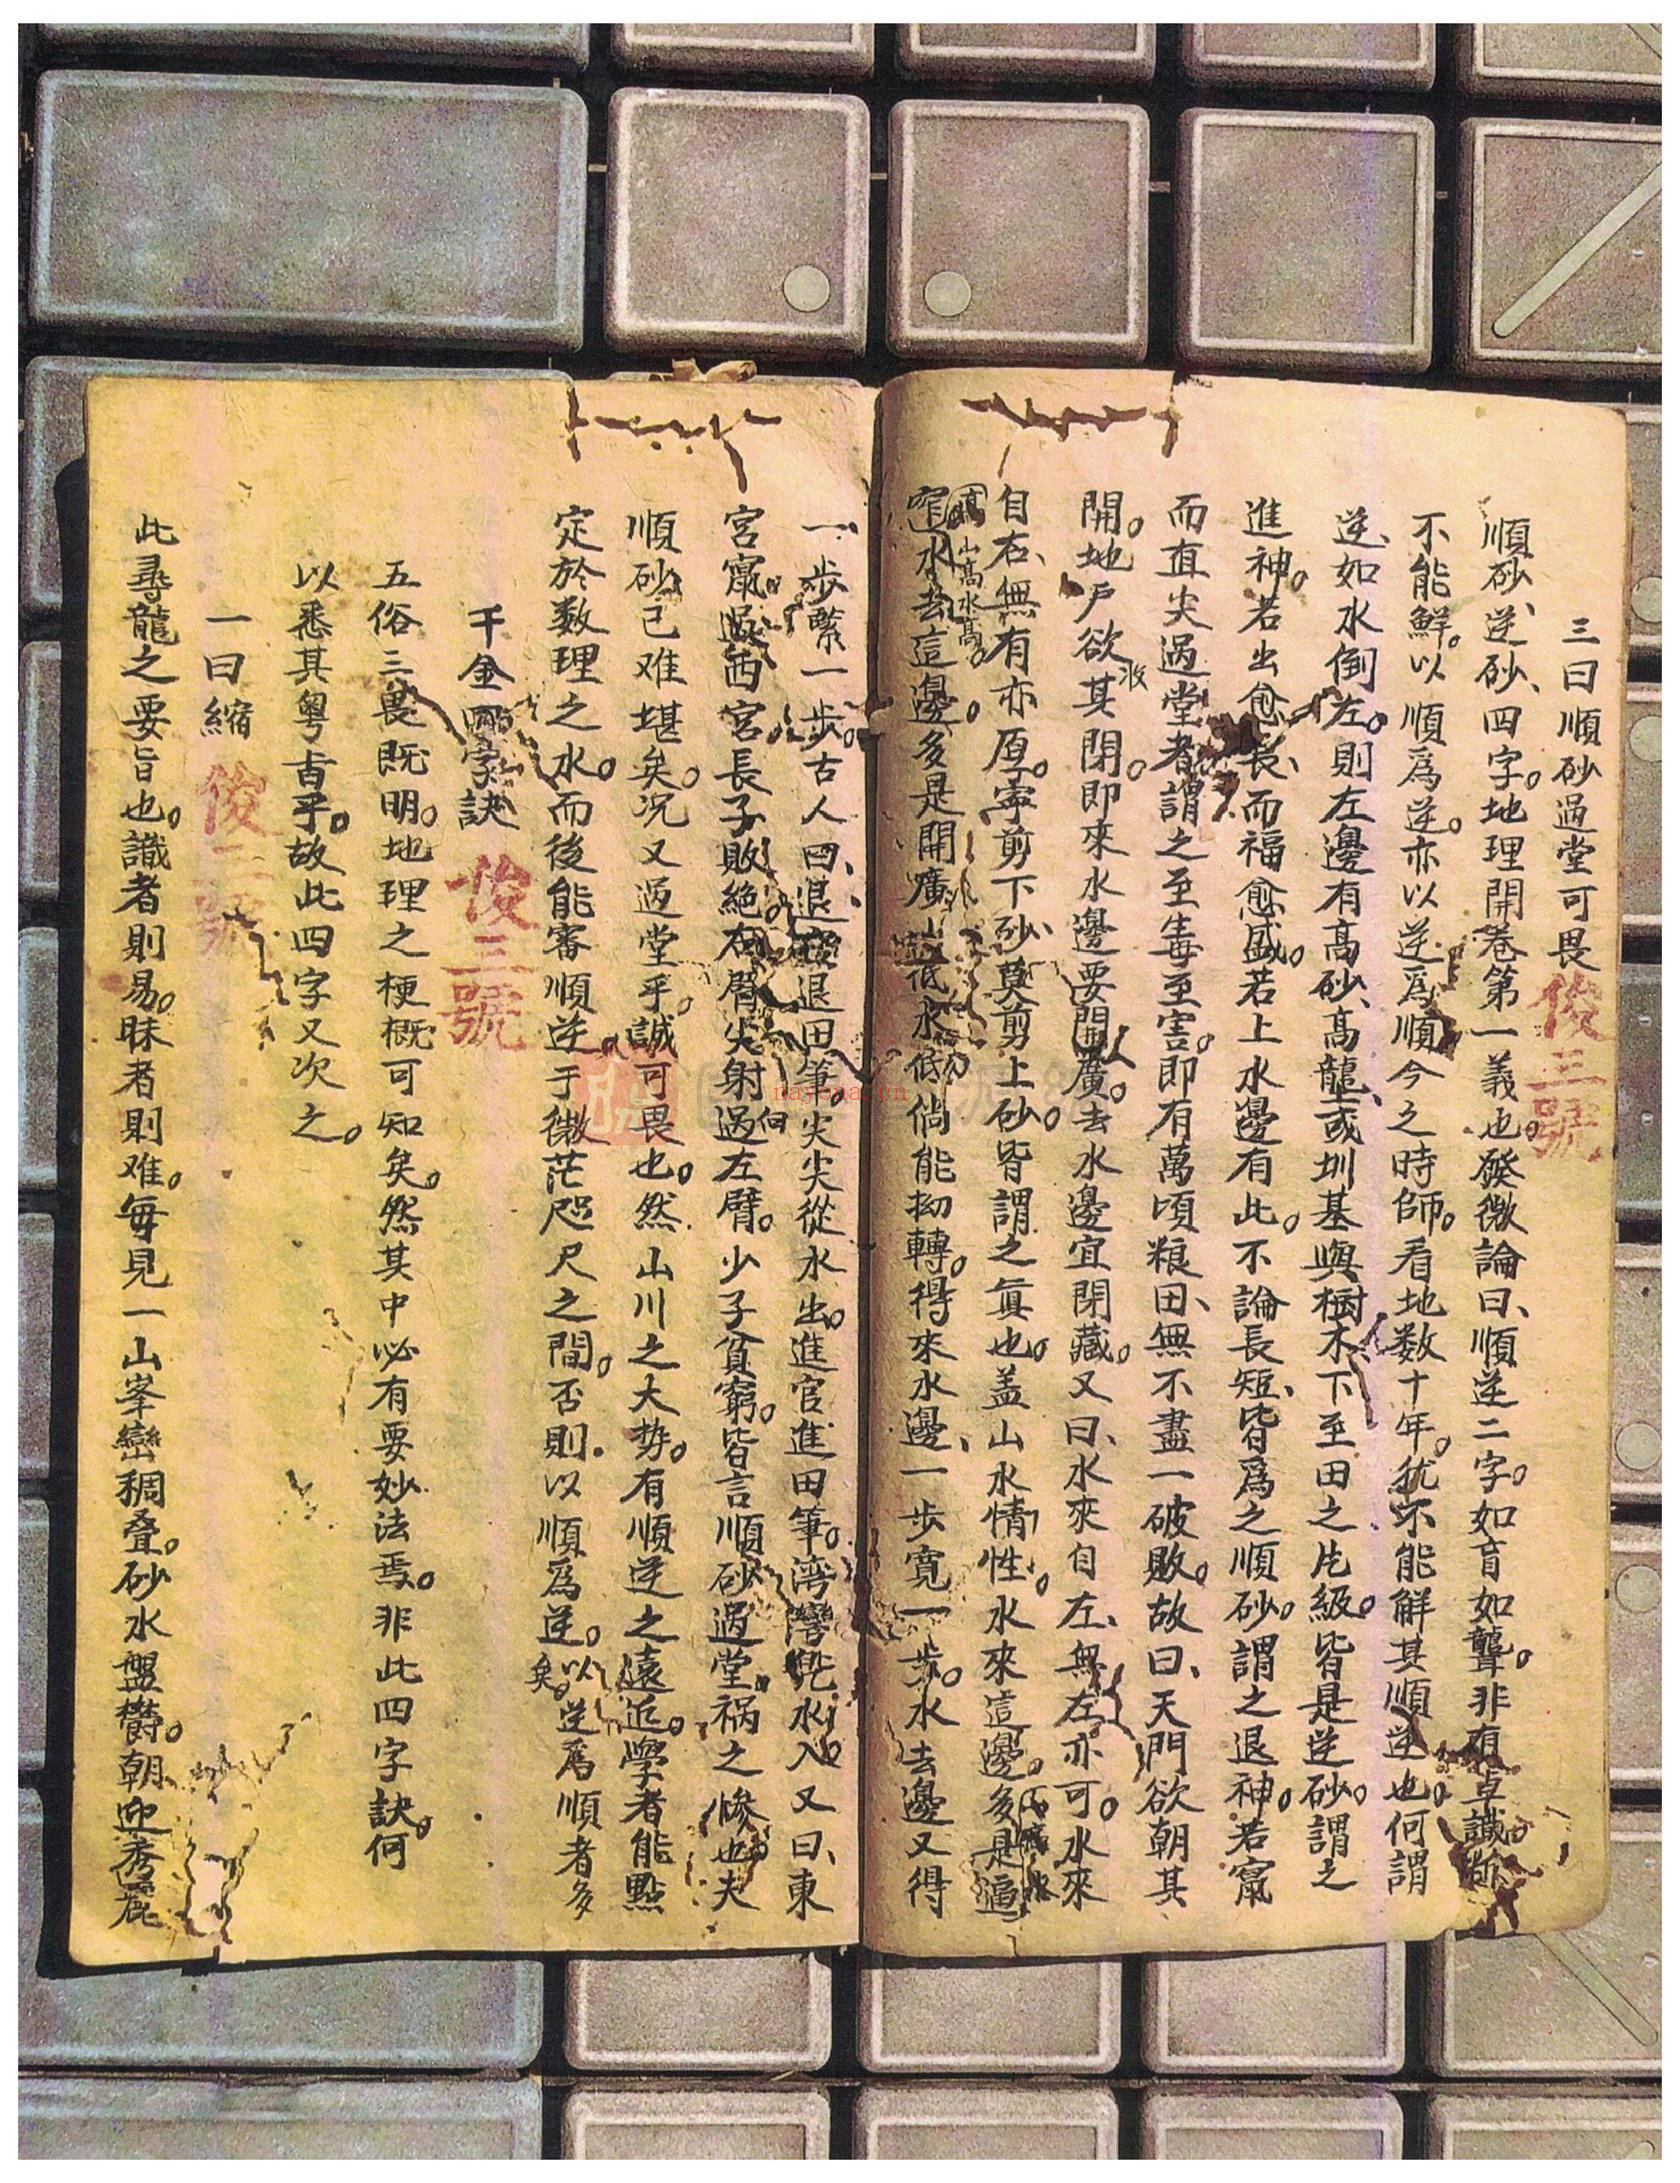 三曰順砂過堂可畏 俊三號
順砂、逆砂、四字。地理開卷第一義也。發微論曰、順逆二字。如盲如聾。非有卓識斷
不能鮮。以順爲逆。亦以逆爲順今之時師。看地数十年。犹不能解其順逆也。何謂
逆、如水倒左。則左邊有高砂、高壠、或圳基與樹木下至田之片級。皆是逆砂。謂之
進神。若出愈長、而福愈盛。若上水邊有此。不論長短、皆爲之順砂。謂之退神。若竄
而直尖過堂者謂之至毒至害。即有萬頃粮田、無不盡一破敗。故曰、天門欲朝其
開。地戶欲其閉。即來水邊要開廣。去水邊宜閉藏。又曰、水來自左、無左亦可。水來
自右、無有亦厚。寧剪下砂、莫剪上砂。皆謂之眞也。盖山水情性。水來這邊。多是逼
高山高水高。
窄。水去這邊。多是開廣山低水低倘能拗轉。得來水邊、一步寬一步。水去邊又得
一步緊一步。古人曰、退官退田筆。尖尖從水出。進官進田筆。湾湾兜水入。又曰、東
宮竄過西宮。長子敗絶。右臂尖射過左臂。少子貧窮。皆言順砂過堂。祸之慘也。夫
順砂已难堪矣。况又過堂乎。誠可畏也。然山川之大势。有順逆之遠近。學者能點
定於数理之水。而後能審順逆。于微茫咫尺之間。否則以順爲逆。以逆爲順者多
矣。
千金四字訣 俊三號
五俗三畏既明。地理之梗概可知矣。然其中必有要妙法焉。非此四字訣。何
以悉其粤旨乎。故此四字又次之。
一曰縮 俊二號
此尋龍之要旨也。識者則易。昧者則难。毎見一山峯巒稠叠。砂水盤欝。朝迎秀麗
nayona.cn